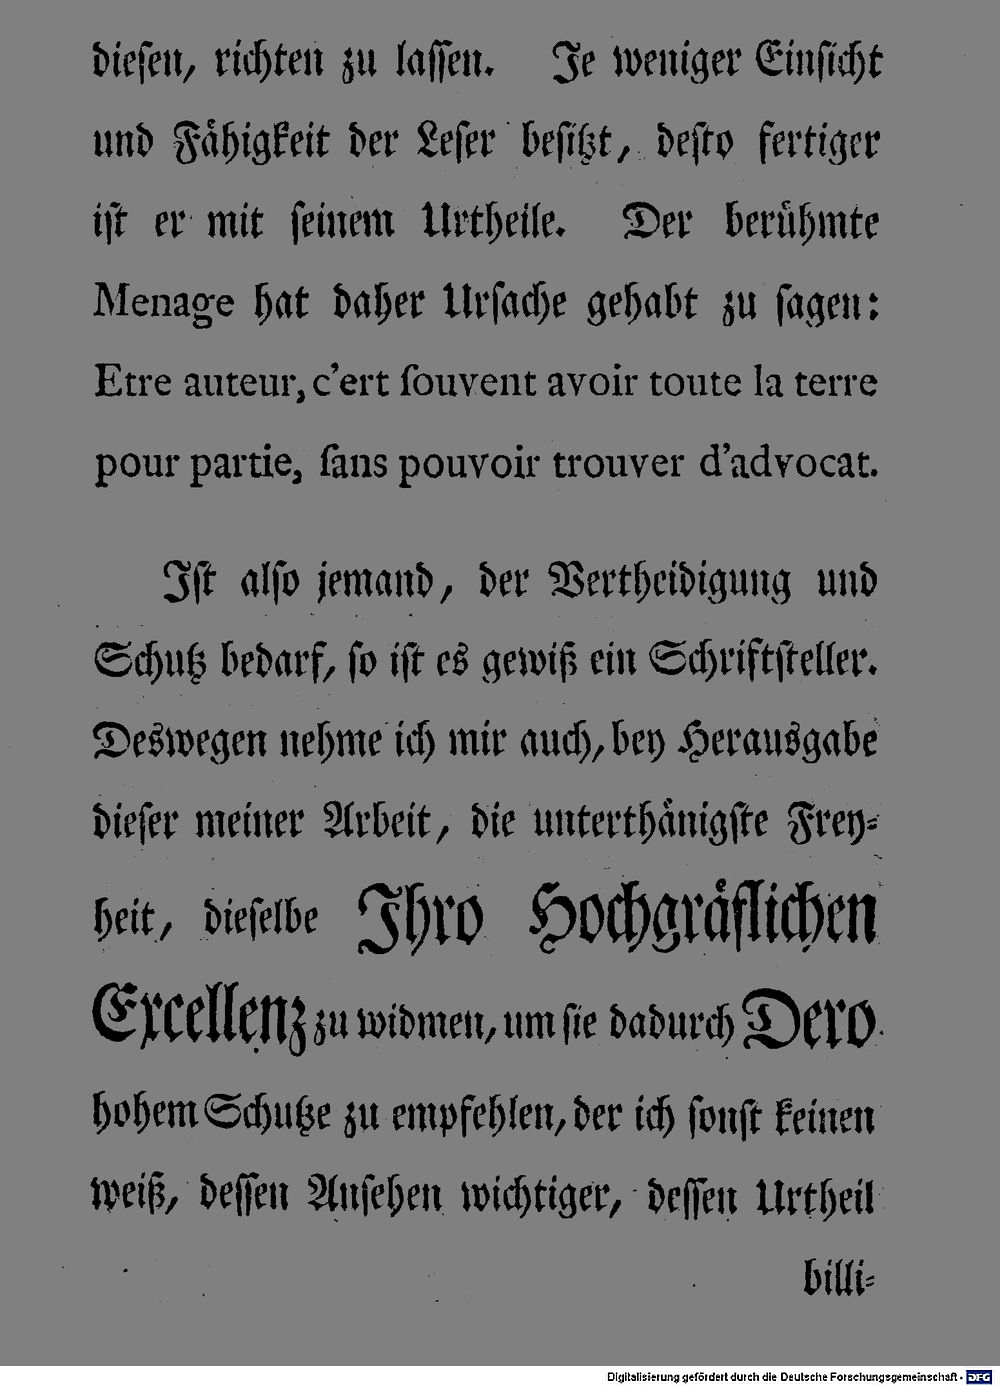 dieſen, richten zu laſſen. Je weniger Einſicht
und Fähigkeit der Leſer beſitzt, deſto fertiger
iſt er mit ſeinem Urtheile. Der berühmte
Menage hat daher Urſache gehabt zu ſagen:
Etre auteur, c'ert ſouvent avoir toute la terre
pour partie, ſans pouvoir trouver d'advocat.
Iſt alſo jemand, der Vertheidigung und
Schutz bedarf, ſo iſt es gewiß ein Schriftſteller.
Deswegen nehme ich mir auch, bey Herausgabe
dieſer meiner Arbeit, die unterthänigſte Frey⸗
heit, dieſelbe Ihro Hochgräflichen
Excellenz zu widmen, um ſie dadurch Dero
hohem Schutze zu empfehlen, der ich ſonſt keinen
weiß, deſſen Anſehen wichtiger, deſſen Urtheil
billi⸗
Digitalisierung gefördert durch die Deutsche Forschungsgemeinschaft - DFG